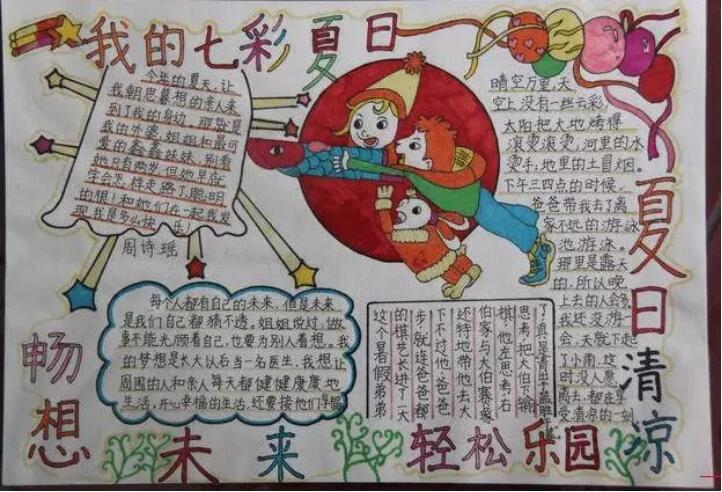 我的七彩夏日
今年的夏天,让
我朝思暮想的亲人来
到了我的身边,那就是
我的外婆、姐姐和最可
爱的鑫鑫妹妹,别看
她只有两岁,但她早就
学会怎样走路了,聪明
的狠!和她们在一起我发
现我是多么快
生!
周诗瑶
晴空万里,天
空上没有一丝云彩,
太阳把大地烤得
滚烫滚烫,河里的水
烫手,地里的土冒烟。
下午三四点的时候,
爸爸带我去了离
家不远的游泳
池游泳。
那里是露天
的,所以晚
上去的人会多
我还没游一
会,天就下起
了小雨,这
时没人愿
离去,都在享
受清凉的一刻
夏日清凉
每个人都有自己的未来,但是未来
是我们自己都猜不透。姐姐说过,做
事不能光顾看自己,也要为别人看想。我
的梦想是长大以后当一名医生,我想让
周围的人和亲人每天都健健康康地
生活,开心幸福的生活,还要接他们享福
畅想未来
这个暑假弟弟
的棋艺长进了一大
步,就连爸爸都
下不过他,爸爸
还特地带他去大
伯家与大伯
棋,他左思考右
思考,把大伯下输
了,真是青出于蓝胜于蓝
轻松乐园